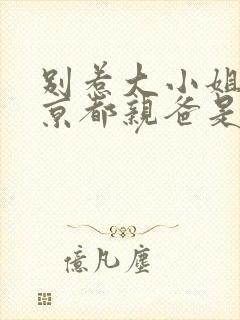 别惹大小姐
京都親爸是
億凡塵